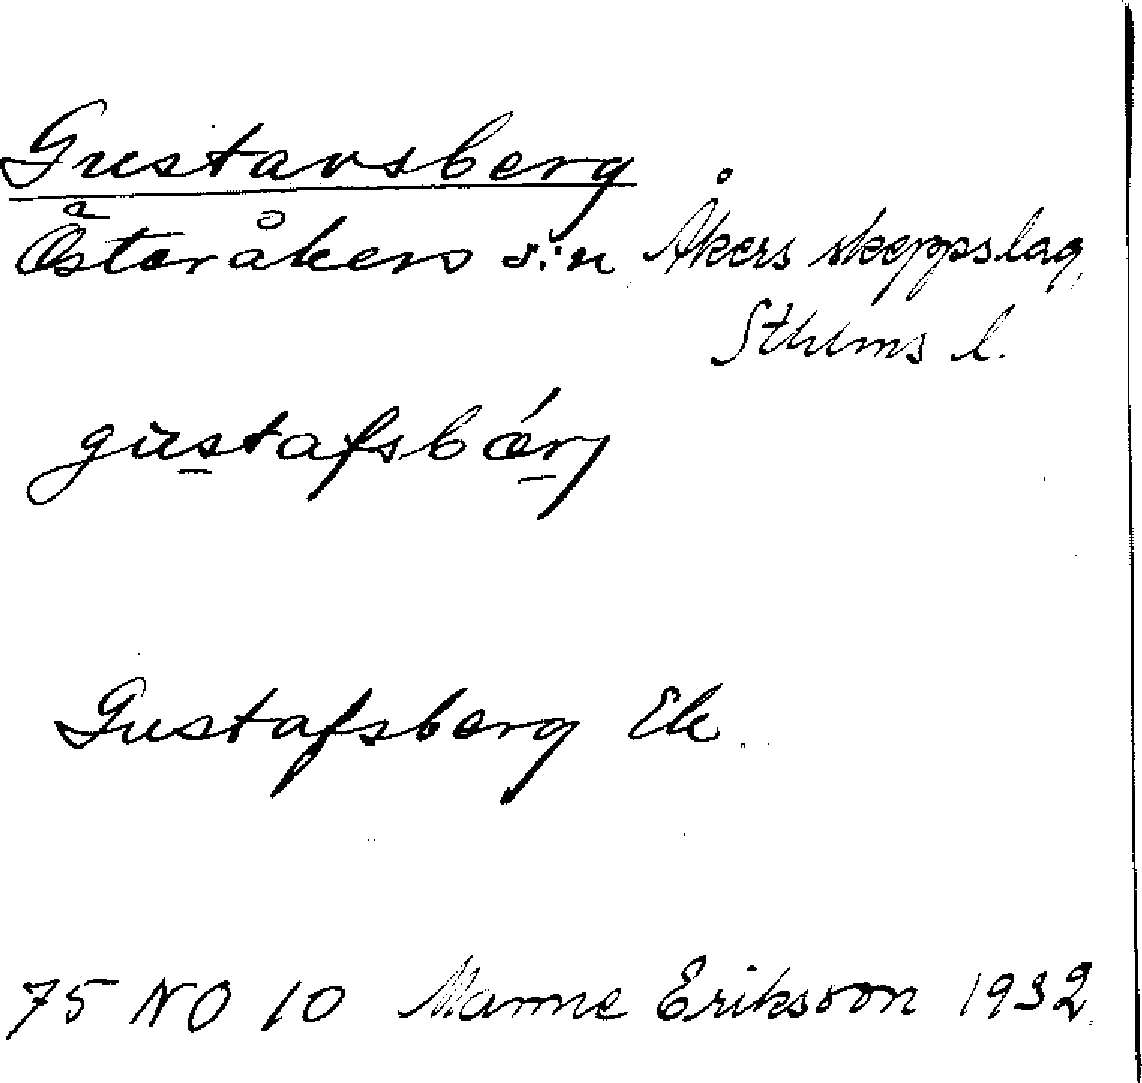 Gustavsberg
Österåkers s:n Åkers skeppslag,
Sthlms l.
gùstafsbǽrj
Gustafsberg Ek.
75 NO 10 Manne Eriksson 1932